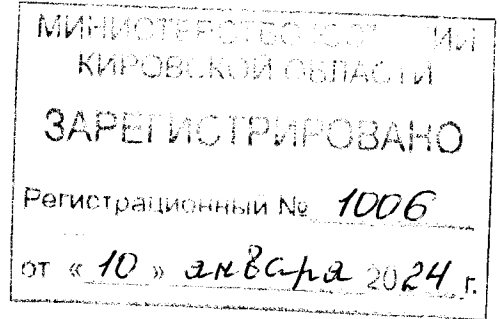 МИНИСТЕРСТВО ЮСТИЦИИ
КИРОВСКОЙ ОБЛАСТИ
ЗАРЕГИСТРИРОВАНО
Регистрационный № 1006
от « 10 » января 2024 г.